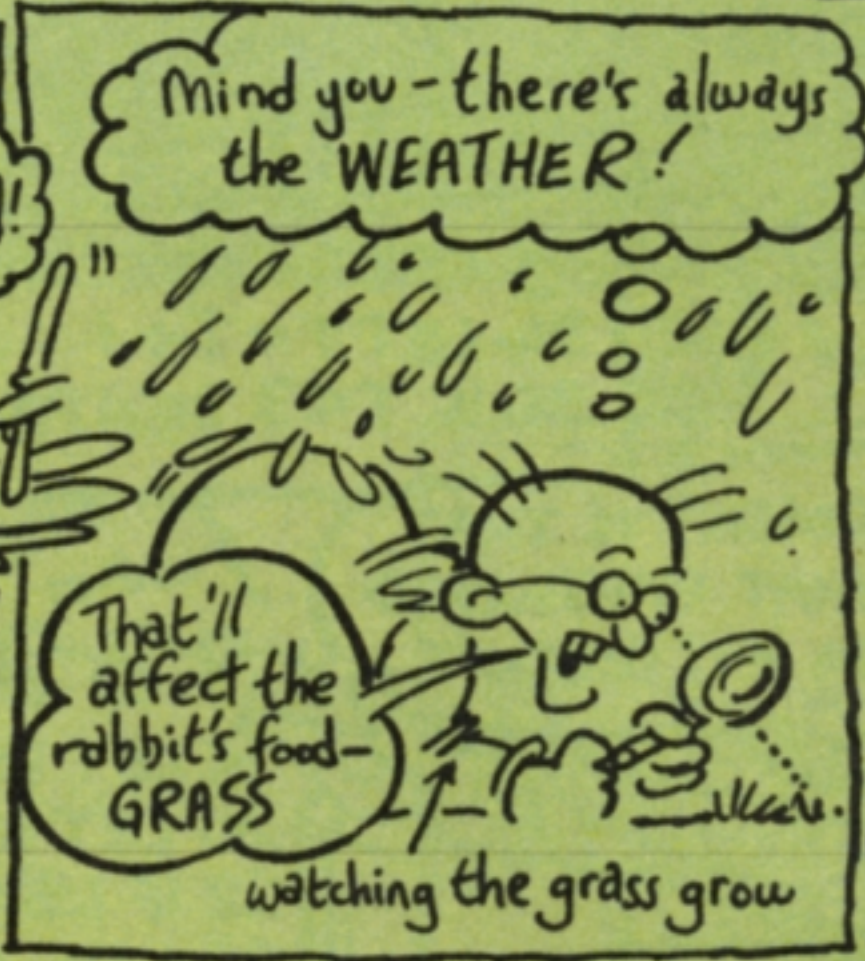 Mind you - there's always
the WEATHER!
!
That'll
affect the
rabbit's food-
GRASS
watching the grass grow